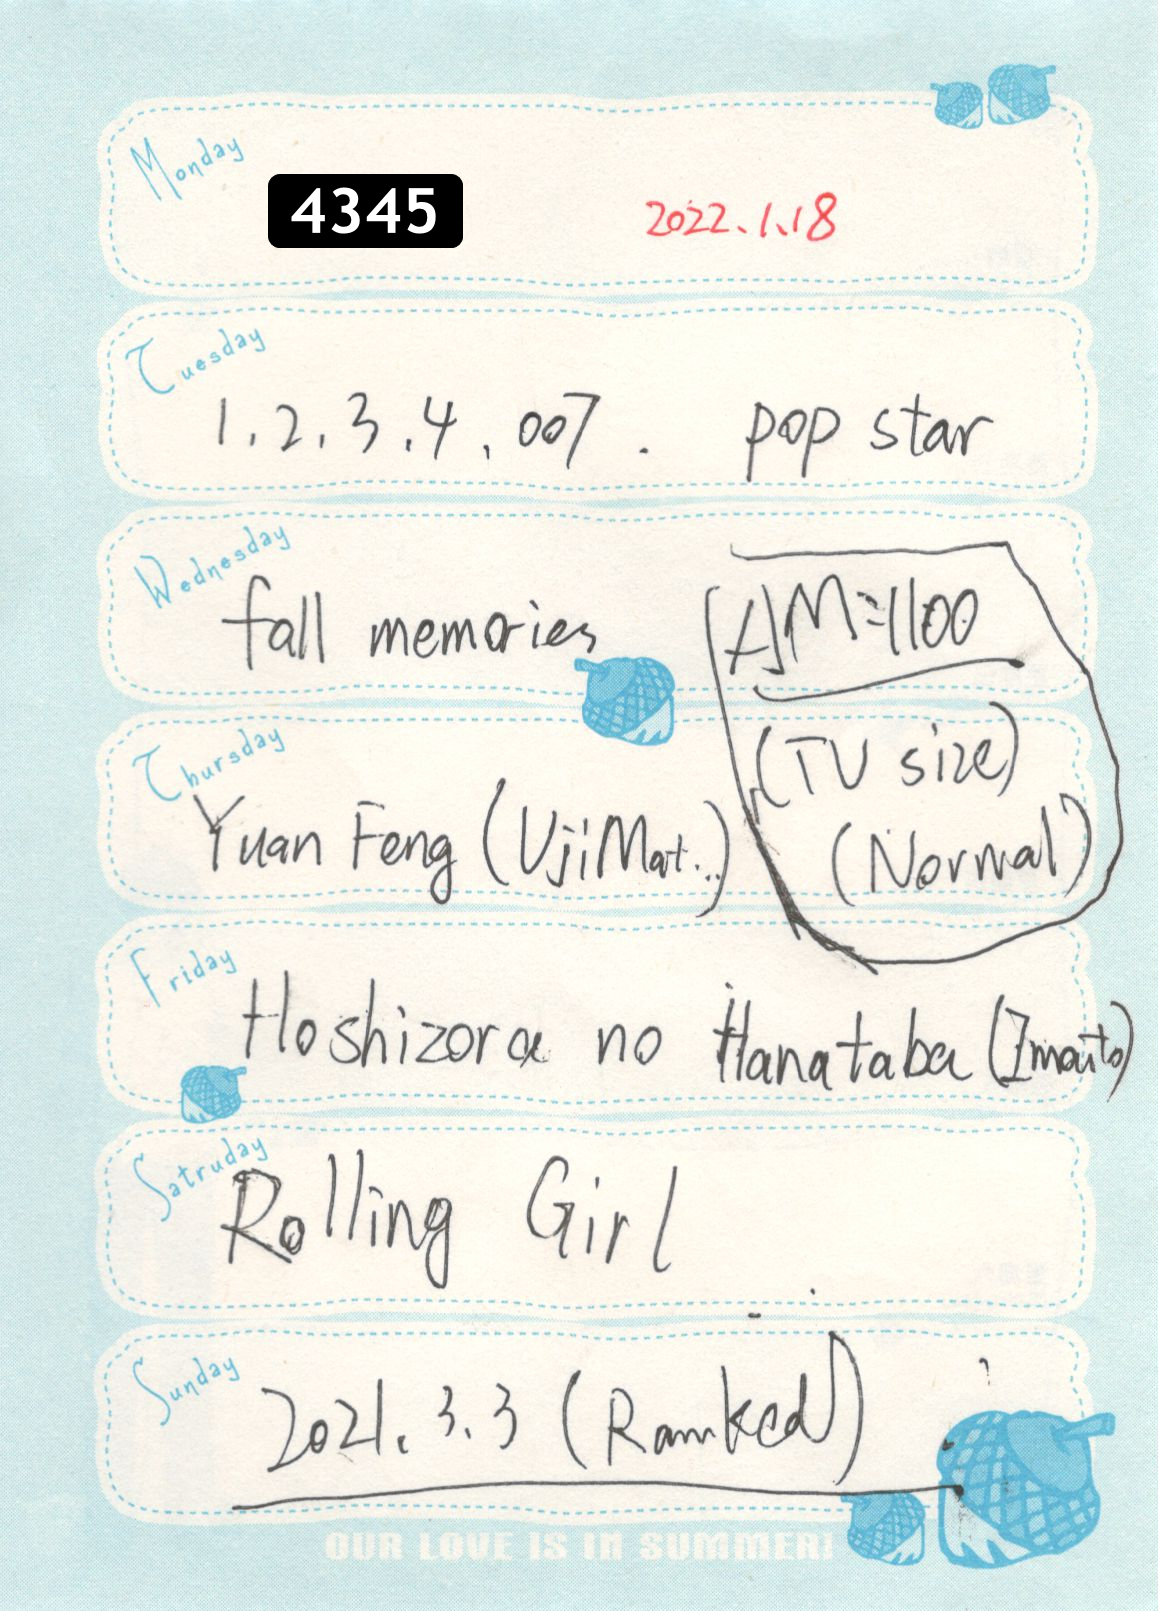 Monday
4345 2022.1.18
Tuesday
1.2.3.4.007. pop star
Wednesday
fall memories
=1100
Thursday
(TV size)
Yuan Feng (UjiMat..)
(Normal)
Friday
Hoshizora no Hanataba (Imaito)
Satruday
Rolling Girl
Sunday
2021.3.3 (Ranked)
OUR LOVE IS IN SUMMER!